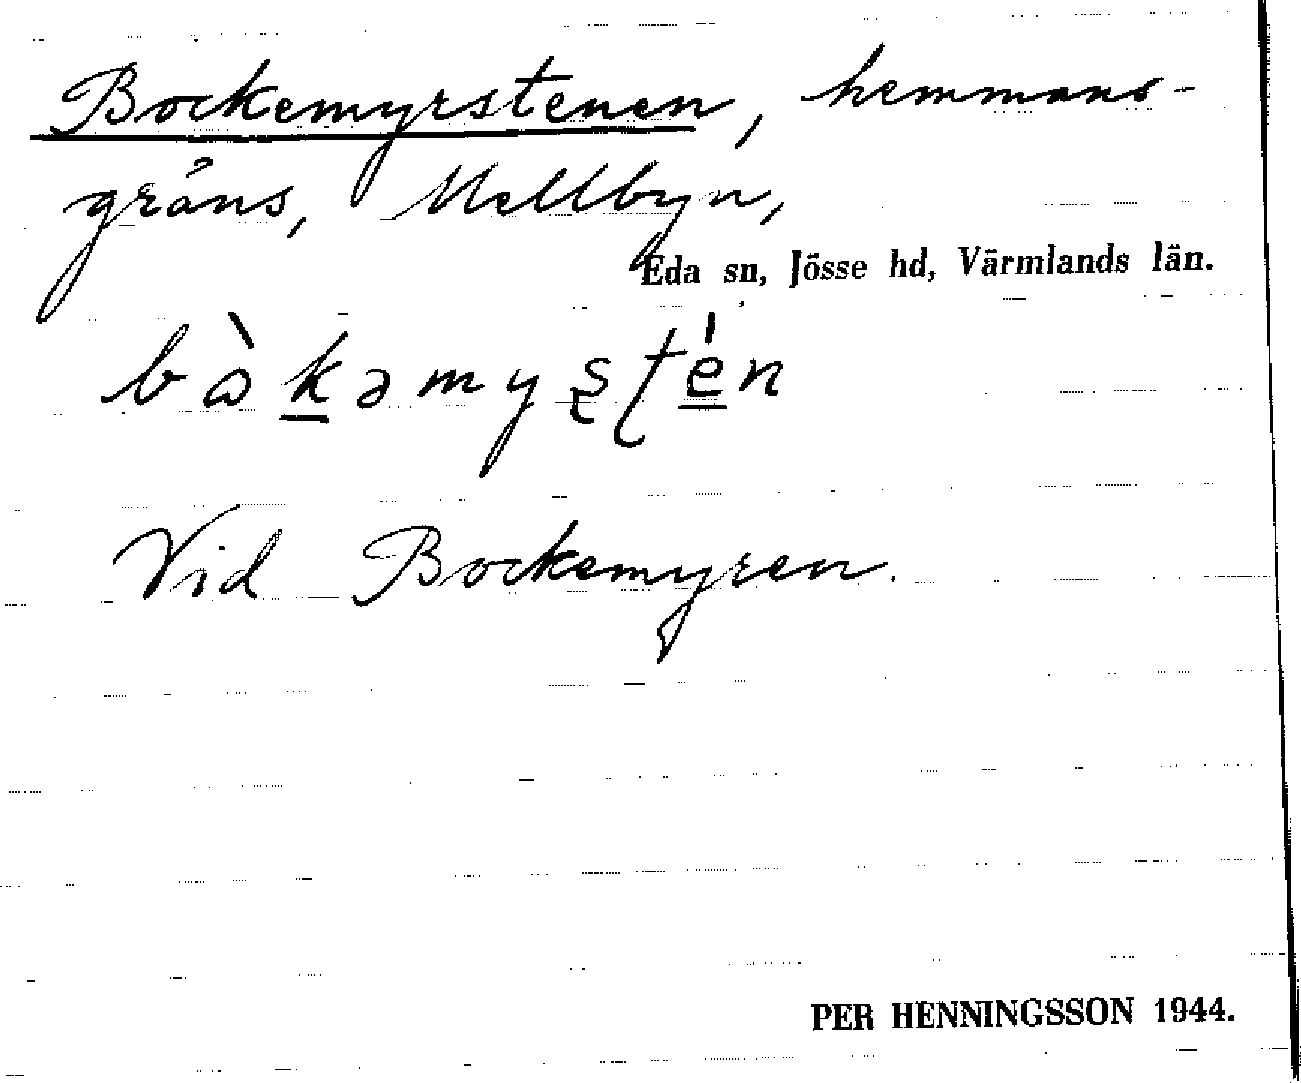 Bockemyrstenen, hemmans-
gräns, Mellbyn,
Eda sn, Jösse hd, Värmlands län.
Vid Bockemyren.
PER HENNINGSSON 1944.